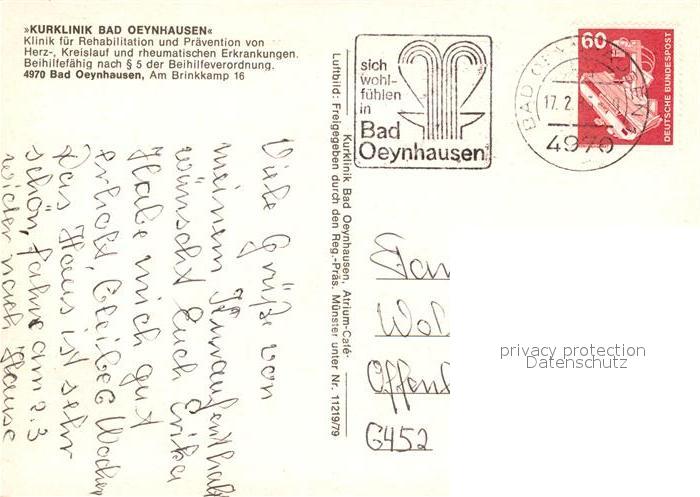 »KURKLINIK BAD OEYNHAUSEN«
Klinik für Rehabilitation und Prävention von
Herz-, Kreislauf und rheumatischen Erkrankungen.
Beihilfefähig nach § 5 der Beihilfeverordnung.
4970 Bad Oeynhausen, Am Brinkkamp 16
Viele Grüße von
meinem Kuraufenthalt
wünscht Euch Erika
Habe mich gut
erholt, bleibe 6 Wochen
Das Haus ist sehr
schön, fahre am 2.3
wieder nach Hause
Kurklinik Bad Oeynhausen, Atrium-Café.
Luftbild: Freigegeben durch den Reg.-Präs. Münster unter Nr. 11219/79
sich
wohl-
fühlen
in
Bad
Oeynhausen
BAD OEYN EN
17.2.
4970
60
DEUTSCHE BUNDESPOST
Fam
Wol
Offen
6452
privacy protection
Datenschutz